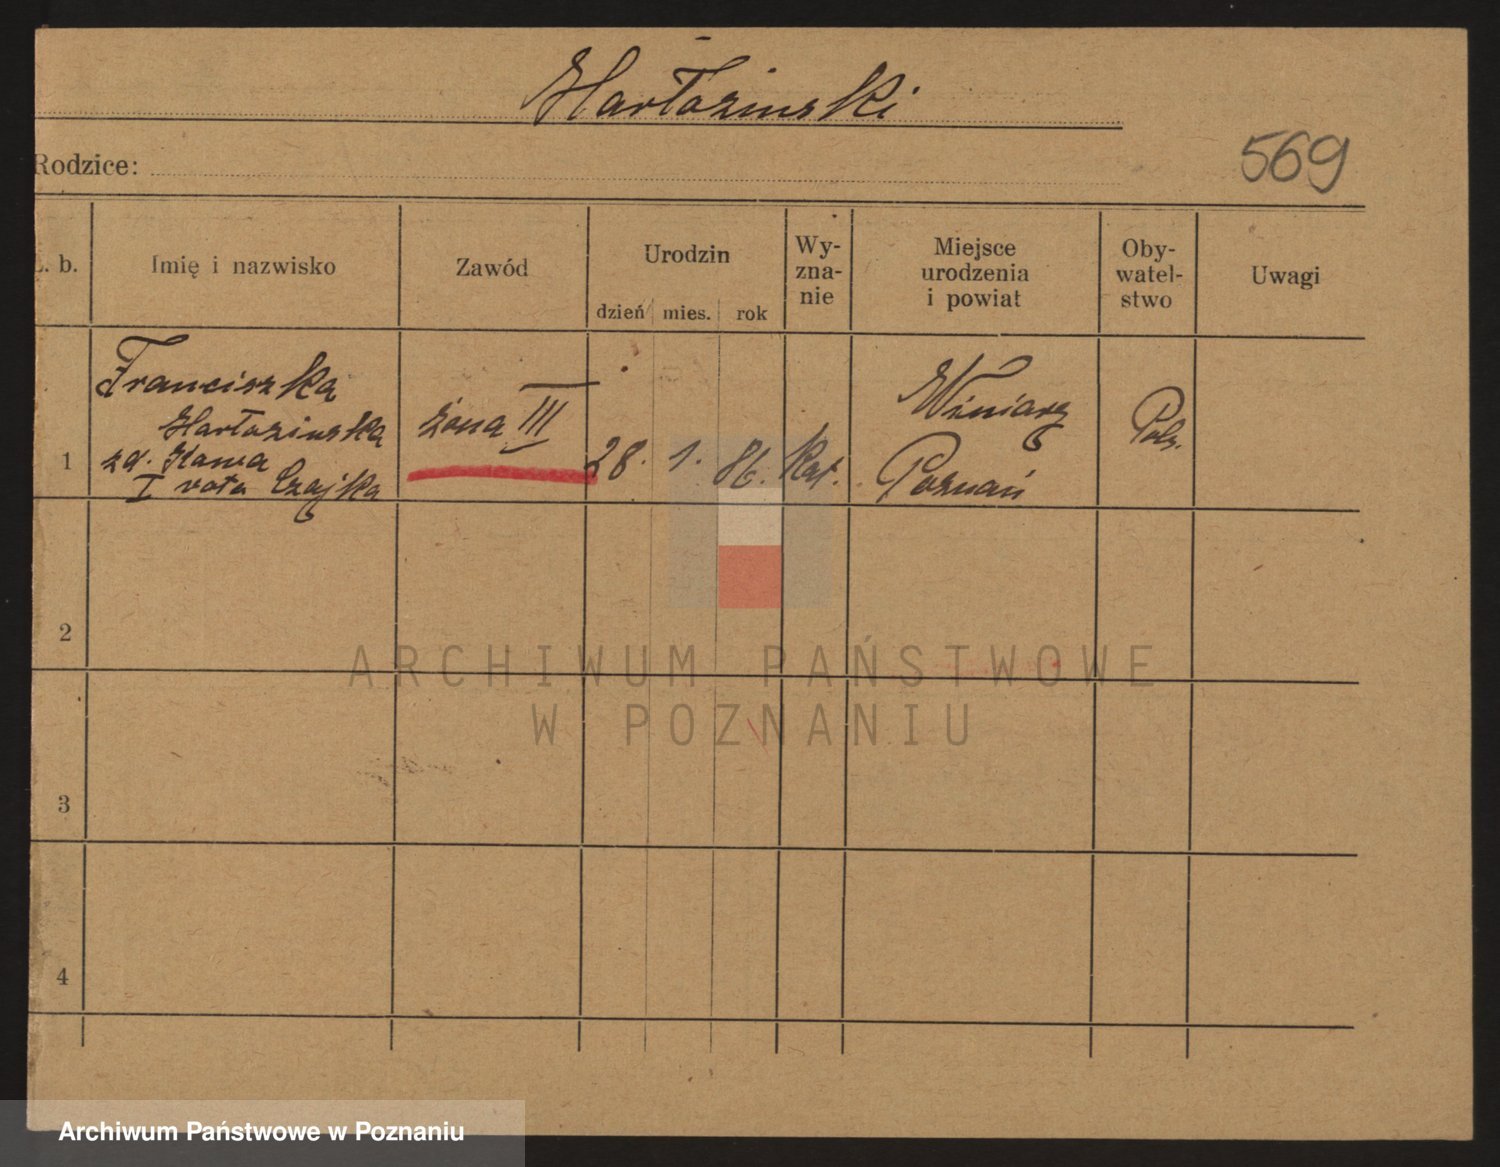 Hartozinski
569
Rodzice:
b.
Imię i nazwisko
Zawód
Urodzin
dzień mies. rok
Wy-
zna-
nie
Miejsce
urodzenia
i powiat
Oby-
watel-
stwo
Uwagi
1
Franciszka
Hartozinska
zd. Kawa
I voto Czajka
żona III
28. 1. 86.
Kat.
Winiary
Poznań
Pols.
2
3
4
ARCHIWUM PAŃSTWOWE
W POZNANIU
Archiwum Państwowe w Poznaniu